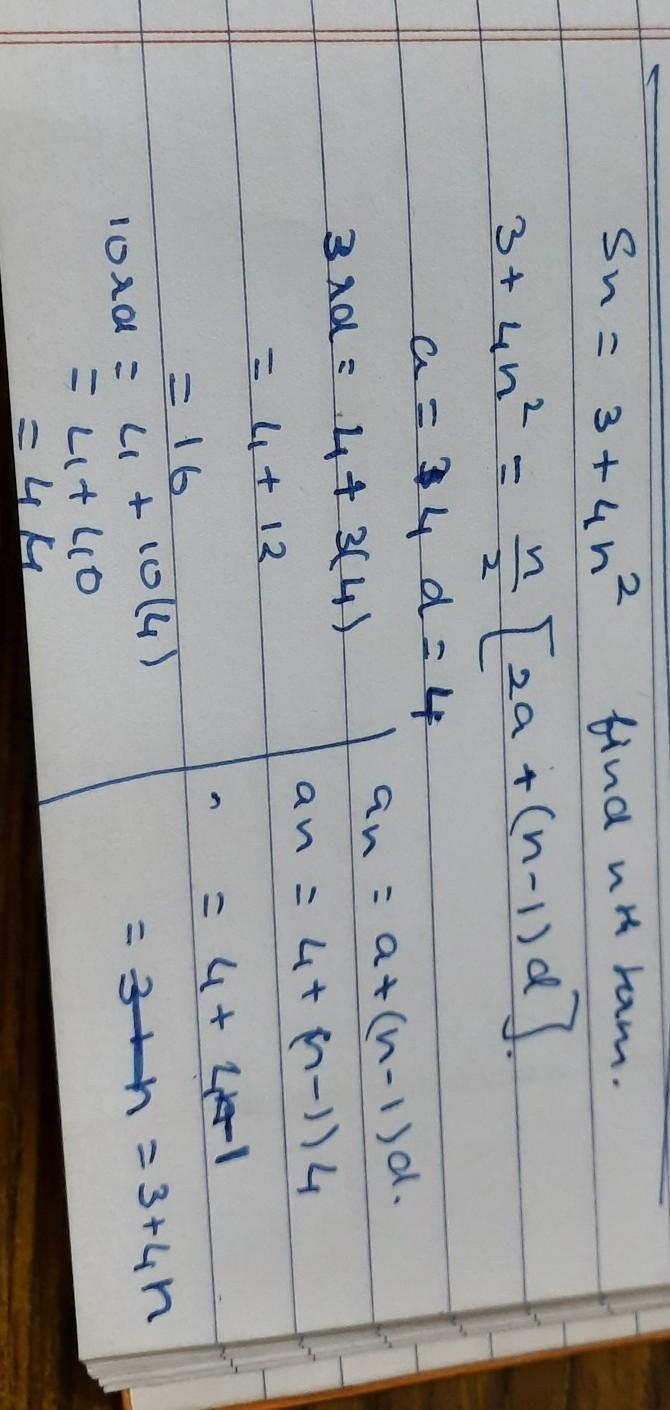 Sn = 3 + 4n² find nth term.
3 + 4n² = n/2 [2a + (n-1)d].
a = 4 d = 4
3rd = 4 + 3(4)
= 4 + 12
= 16
10rd = 4 + 10(4)
= 4 + 40
= 44
an = a + (n-1)d.
an = 4 + (n-1)4
" = 4 + 4n-1
= 3+n = 3+4n